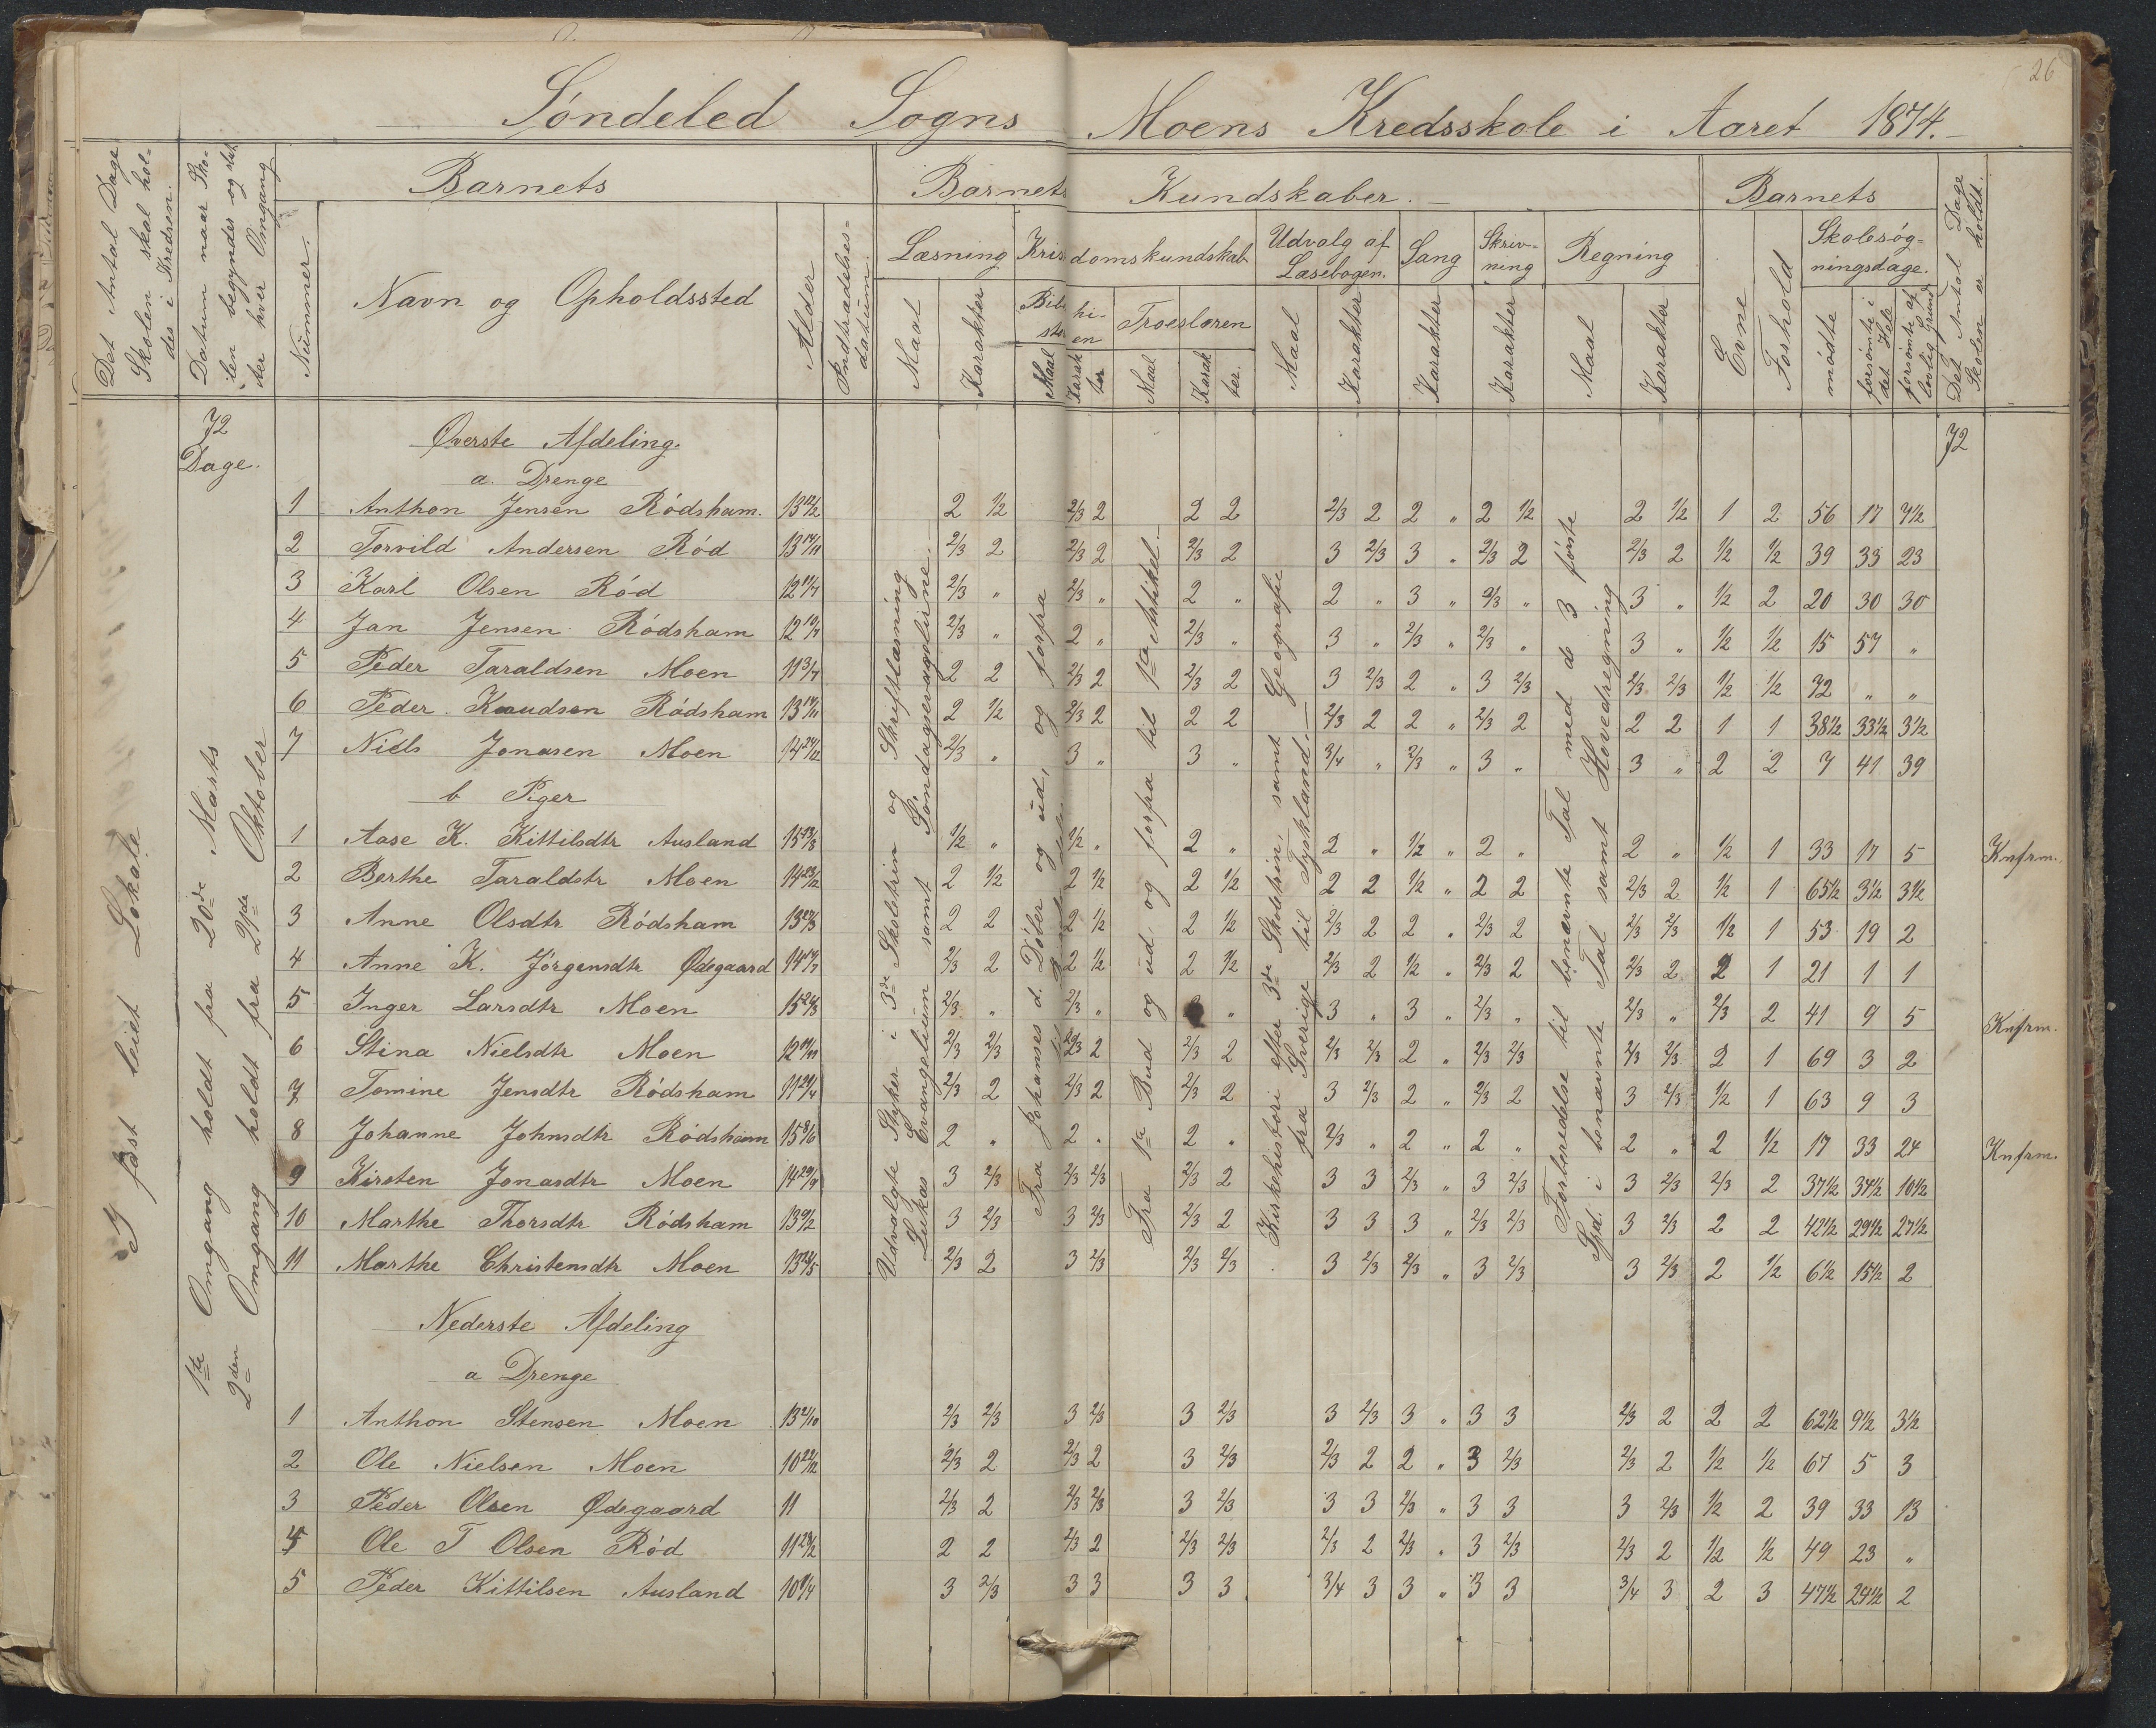 26
Söndeled Sogns Moens Kredsskole i Aaret 1874.
Det Antal Dage Skolen skal holdes i Kredsen.
Datum naar Skolen begyndes og slutter hver Omgang
Nummer.
Barnets
Navn og Opholdssted
Alder
Indtrædelsesdatum.
Barnets Kundskaber.
Læsning
Maal
Karakter
Kristendomskundskab
Bibelhistorien
Maal
Karakter
Troeslæren
Maal
Karakter.
Udvalg af Læsebogen.
Maal
Karakter
Sang
Karakter
Skrivning
Karakter
Regning
Maal
Karakter
Barnets
Evne
Forhold
Skolesøgningsdage.
mødte
forsømte i det Hele
forsømte af lovlig Grund
Det Antal Dage Skolen er holdt.
72 Dage.
72
I fast leiet Lokale
1ste Omgang holdt fra 20de Marts
2den Omgang holdt fra 21de Oktober
Udvalgte Styker i 3de Skoletrin og Skriftlæsning
Lukas Evangelium samt Søndagsevangelierne.
Fra Johannes d. Døber og ud, og forfra
Fra 1ste Bud og ud og forfra til 1ste Artikel.
Kirkehistori efter 3de Skoletrin, samt Geografie
fra Sverige til Tyskland.
Forberedelse til benævnte Tal med de 3 første
Spd. i benævnte Tal samt Hovedregning
Øverste Afdeling.
a. Drenge
1 Anthon Jensen Rödsham. 13 12/2 2 1/2 2/3 2 2 2 2/3 2 2 " 2 1/2 2 1/2 1 2 56 17 7 1/2
2 Torvild Andersen Röd 13 17/11 2/3 2 2/3 2 2/3 2 3 2/3 3 " 2/3 2 2/3 2 1/2 1/2 39 33 23
3 Karl Olsen Röd 12 11/7 2/3 " 2/3 " 2 " 2 " 3 " 2/3 " 3 " 1/2 2 20 30 30
4 Jan Jensen Rödsham 12 19/7 2/3 " 2 " 2/3 " 3 " 2/3 " 2/3 " 3 " 1/2 1/2 15 57 "
5 Peder Taraldsen Moen 11 3/7 2 2 2/3 2 2/3 2 3 2/3 2 " 3 2/3 2/3 2/3 1/2 1/2 72 " "
6 Peder Knudsen Rödsham 13 17/11 2 1/2 2/3 2 2 2 2/3 2 2 " 2/3 2 2 2 1 1 38 1/2 33 1/2 3 1/2
7 Niels Jonasen Moen 14 24/12 2/3 " 3 " 3 " 3/4 " 2/3 " 3 " 3 " 2 2 7 41 39
b Piger
1 Aase K. Kittilsdtr Ausland 15 13/3 1/2 " 1/2 " 2 " 2 " 1/2 " 2 " 2 " 1/2 1 33 17 5 Knfrm.
2 Berthe Taraldstr Moen 14 23/12 2 1/2 2 1/2 2 1/2 2 2 1/2 " 2 2 2/3 2 1/2 1 65 1/2 3 1/2 3 1/2
3 Anne Olsdtr Rödsham 13 27/3 2 2 2 1/2 2 1/2 2/3 2 2 " 2/3 2 2/3 2/3 1/2 1 53 19 2
4 Anne K. Jörgensdtr Ødegaard 14 17/7 2/3 2 2 1/2 2 1/2 2/3 2 1/2 " 2/3 2 2/3 2 2 1 21 1 1
5 Inger Larsdtr Moen 15 24/3 2/3 " 2/3 " " 3 " 3 " 2/3 " 2/3 " 2/3 2 41 9 5 Knfrm.
6 Stina Nielsdtr Moen 12 17/11 2/3 2/3 2/3 2 2/3 2 2/3 2/3 2 " 2/3 2/3 2/3 2/3 2 1 69 3 2
7 Tomine Jensdtr Rödsham 11 29/4 2/3 2 2/3 2 2/3 2 3 2/3 2 " 2/3 2 3 2/3 1/2 1 63 9 3
8 Johanne Johnsdtr Rödsham 15 8/6 2 " 2 " 2 " 2/3 " 2 " 2 " 2 " 2 1/2 17 33 24 Knfrm.
9 Kirsten Jonasdtr Moen 14 29/9 3 2/3 2/3 2/3 2/3 2 3 3 2/3 " 3 2/3 3 2/3 2/3 2 37 1/2 34 1/2 10 1/2
10 Marthe Thorsdtr Rödsham 13 9/2 3 2/3 3 2/3 2/3 2 3 3 3 " 2/3 2/3 3 2/3 2 2 42 1/2 29 1/2 27 1/2
11 Marthe Christensdtr Moen 13 24/5 2/3 2 3 2/3 2/3 2/3 3 2/3 2/3 " 3 2/3 3 2/3 2 1/2 6 1/2 15 1/2 2
Nederste Afdeling
a Drenge
1 Anthon Stensen Moen 13 2/10 2/3 2/3 3 2/3 3 2/3 3 2/3 3 " 3 3 2/3 2 2 2 62 1/2 9 1/2 3 1/2
2 Ole Nielsen Moen 10 22/12 2/3 2 2/3 2 3 2/3 2/3 2 2 " 3 2/3 2/3 2 1/2 1/2 67 5 3
3 Peder Olsen Ødegaard 11 2/3 2 2/3 2/3 3 2/3 3 3 2/3 " 3 3 3 2/3 1/2 2 39 33 13
4 Ole T Olsen Röd 11 28/2 2 2 2/3 2 2/3 2/3 2/3 2 2/3 " 3 2/3 2/3 2 1/2 1/2 49 23 "
5 Peder Kittilsen Ausland 10 9/4 3 2/3 3 3 3 3 3/4 3 3 " 3 3 3/4 3 2 3 47 1/2 24 1/2 2